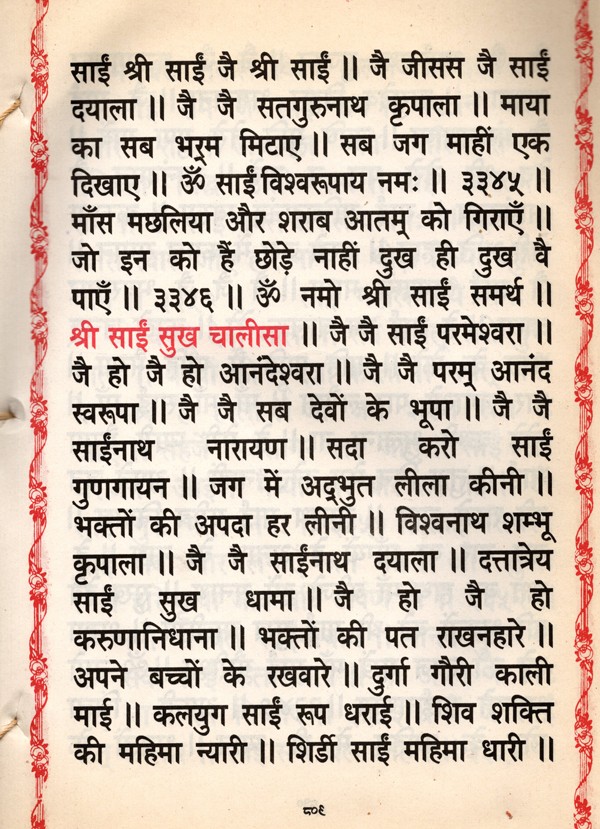 साईं श्री साईं जै श्री साईं ॥ जै जीसस जै साईं
दयाला ॥ जै जै सतगुरुनाथ कृपाला ॥ माया
का सब भर्म मिटाए ॥ सब जग माहीं एक
दिखाए ॥ ॐ साईं विश्वरूपाय नमः ॥ ३३४५ ॥
माँस मछलिया और शराब आतम् को गिराएँ ॥
जो इन को हैं छोड़े नाहीं दुख ही दुख वै
पाएँ ॥ ३३४६ ॥ ॐ नमो श्री साईं समर्थ ॥
श्री साईं सुख चालीसा ॥ जै जै साईं परमेश्वरा ॥
जै हो जै हो आनंदेश्वरा ॥ जै जै परम् आनंद
स्वरूपा ॥ जै जै सब देवों के भूपा ॥ जै जै
साईंनाथ नारायण ॥ सदा करो साईं
गुणगायन ॥ जग में अद्भुत लीला कीनी ॥
भक्तों की अपदा हर लीनी ॥ विश्वनाथ शम्भू
कृपाला ॥ जै जै साईंनाथ दयाला ॥ दत्तात्रेय
साईं सुख धामा ॥ जै हो जै हो
करुणानिधाना ॥ भक्तों की पत राखनहारे ॥
अपने बच्चों के रखवारे ॥ दुर्गा गौरी काली
माई ॥ कलयुग साईं रूप धराई ॥ शिव शक्ति
की महिमा न्यारी ॥ शिर्डी साईं महिमा धारी ॥
८०९